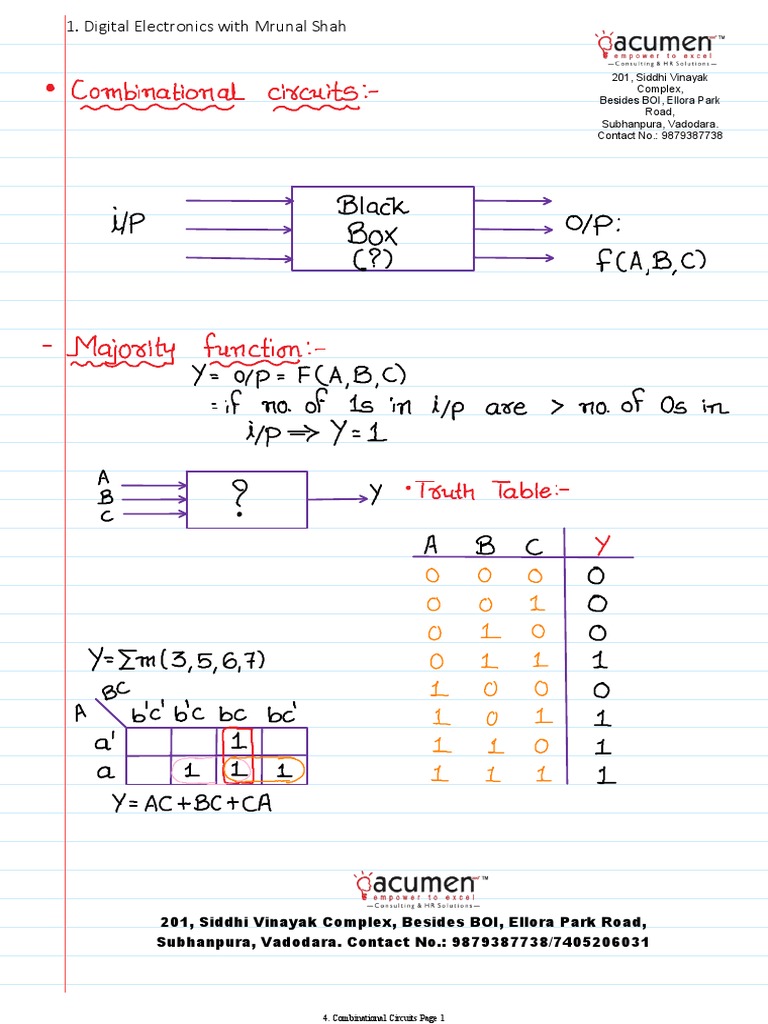 1. Digital Electronics with Mrunal Shah
acumen™
empower to excel
—Consulting & HR Solutions—
201, Siddhi Vinayak
Complex,
Besides BOI, Ellora Park
Road,
Subhanpura, Vadodara.
Contact No.: 9879387738
• Combinational circuits:-
i/p
Black
Box
(?)
O/p:
f(A,B,C)
- Majority function:-
Y= O/p = F(A,B,C)
= if no. of 1s in i/p are > no. of 0s in
i/p ⟹ Y=1
A
B
C
?
Y
• Truth Table:-
A B C Y
0 0 0 0
0 0 1 0
0 1 0 0
0 1 1 1
1 0 0 0
1 0 1 1
1 1 0 1
1 1 1 1
Y=Σm(3,5,6,7)
BC
A b'c' b'c bc bc'
a' 1
a 1 1 1
Y=AC+BC+CA
acumen™
empower to excel
—Consulting & HR Solutions—
201, Siddhi Vinayak Complex, Besides BOI, Ellora Park Road,
Subhanpura, Vadodara. Contact No.: 9879387738/7405206031
4. Combinational Circuits Page 1